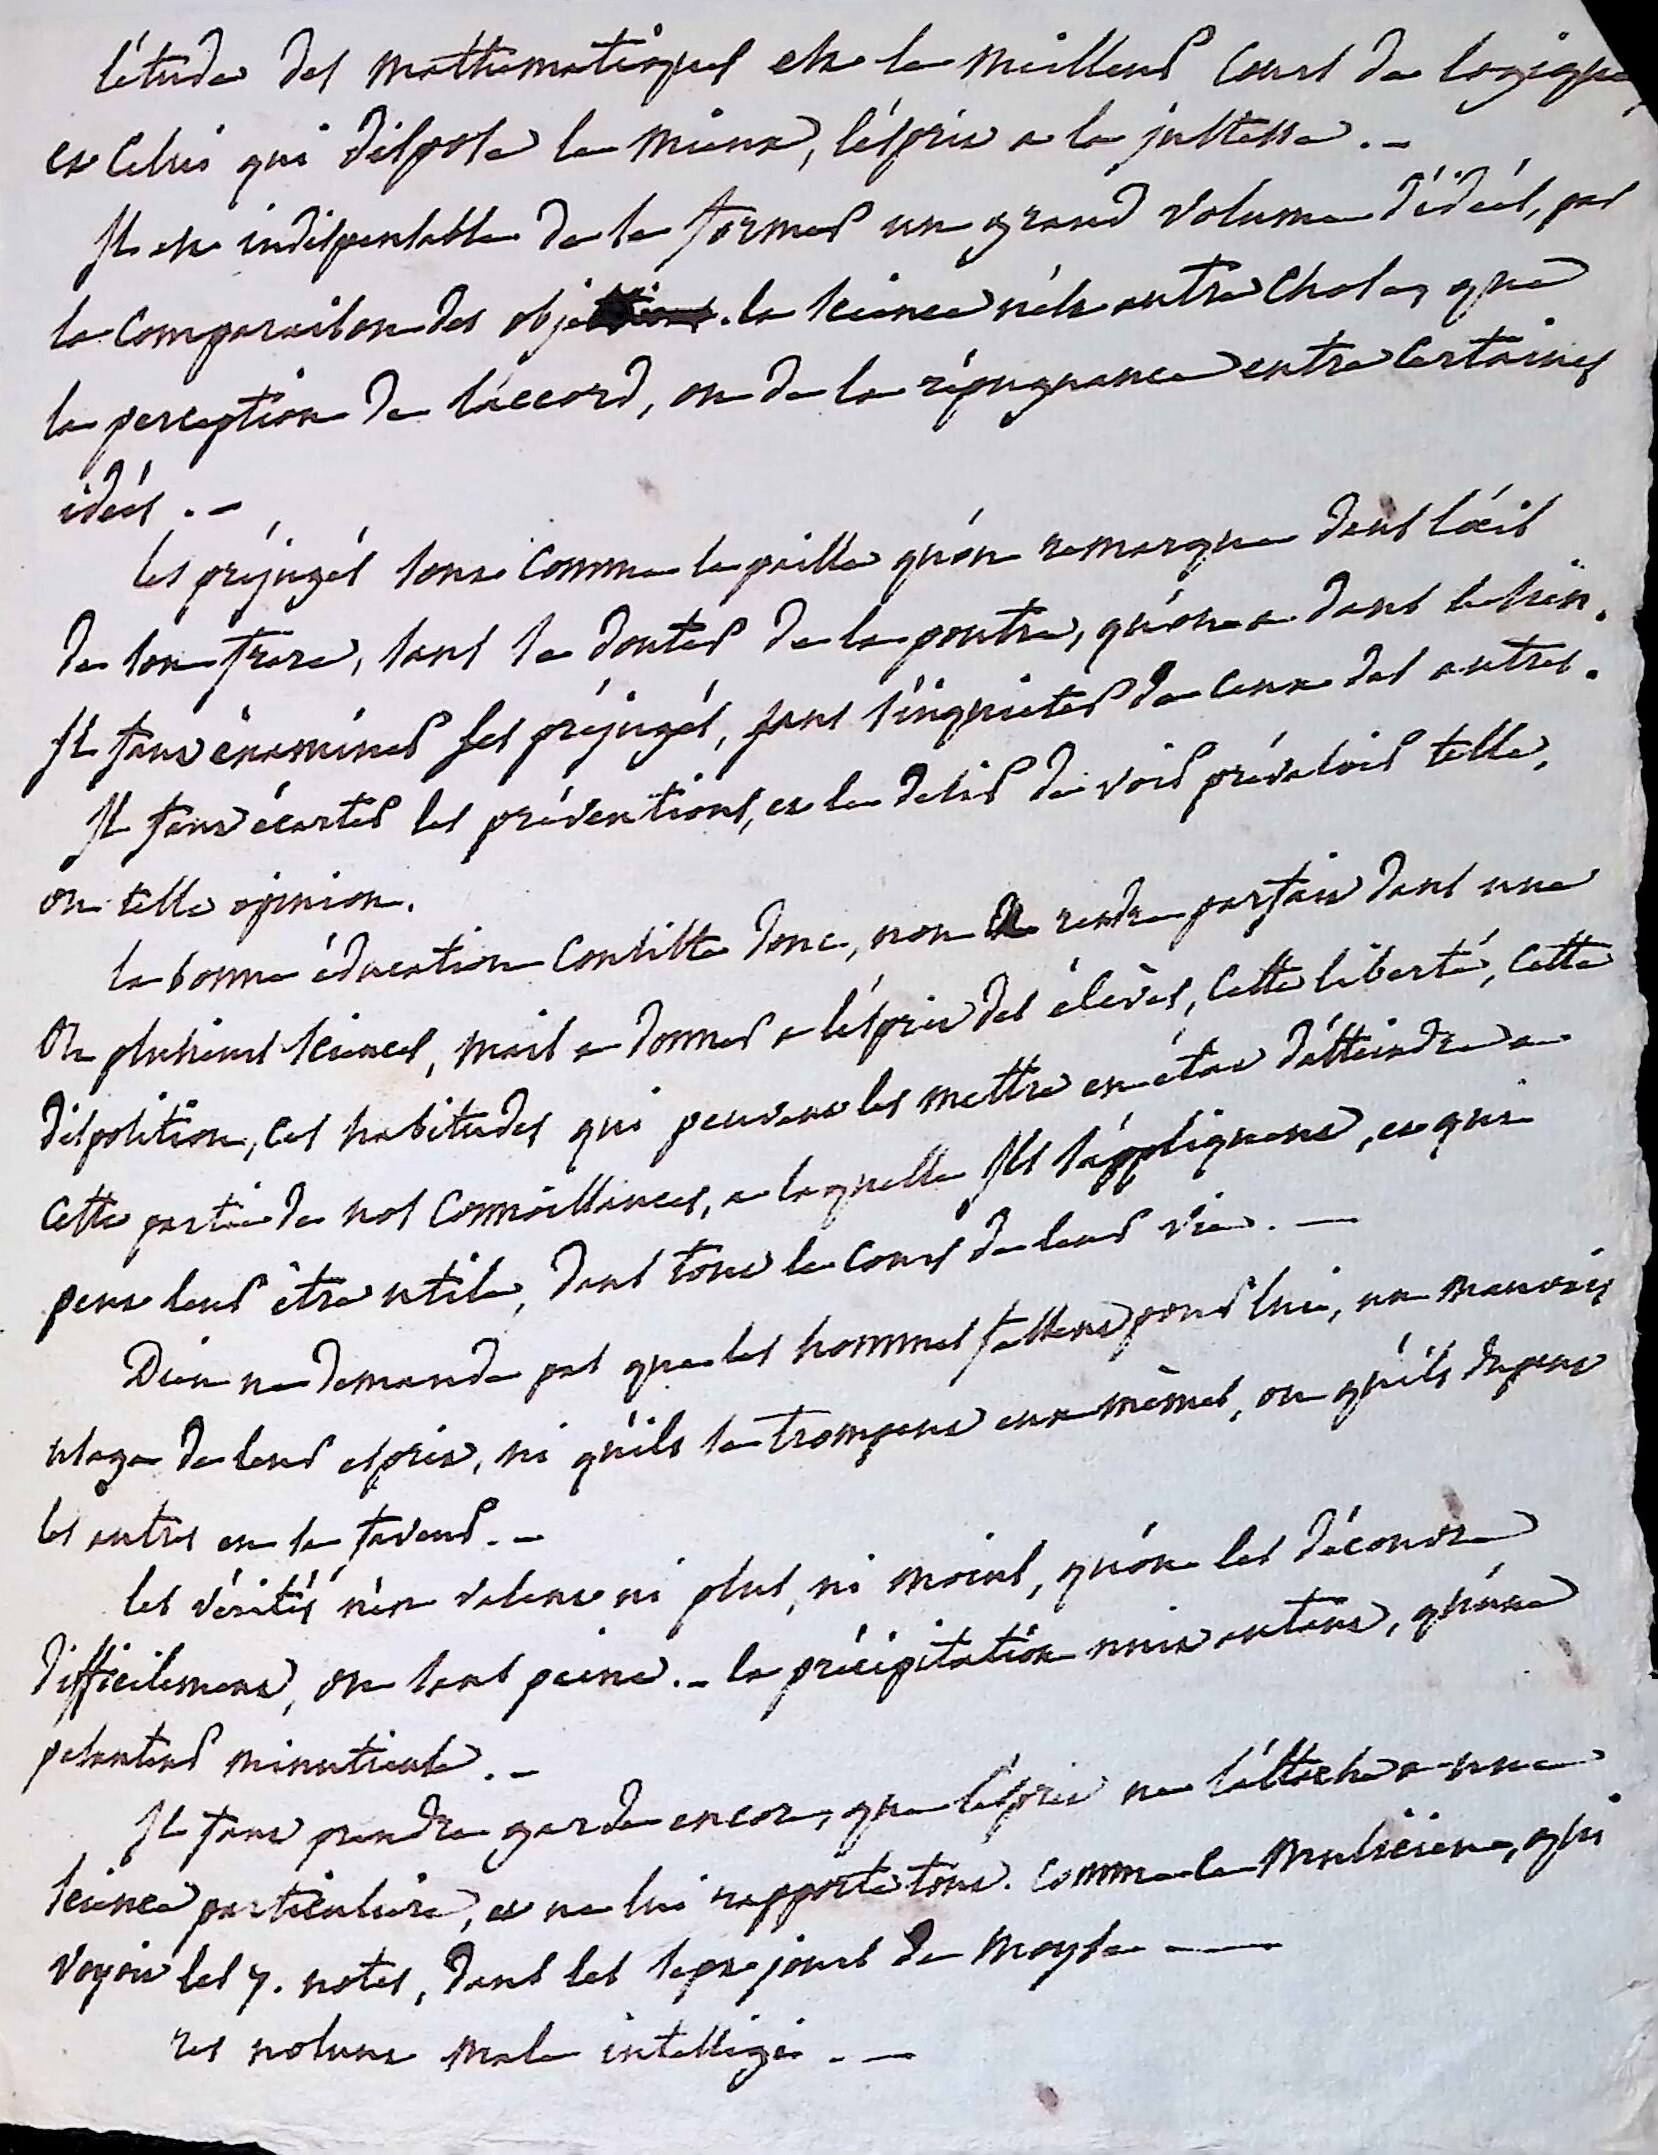 l'étude des mathematiques est le meilleur cours de logique,
et celui qui dispose le mieux, l'ésprit a la justesse. -
Il est indispensable de se former un grand volume d'idées, par
la comparaison des objets. la science n'ést autre chose, que
la perception de l'accord, ou de la répugnance entre certaines
idées. -
les préjugés sont comme la paille qu'on remarque dans l'œil
de son frere, sans se douter de la poutre, qu'on a dans le sien.
Il faut éxaminer ses préjugés, sans s'inquieter de ceux des autres.
Il faut écarter les préventions, et le desir de voir prévaloir telle,
ou telle opinion.
la bonne éducation consiste donc, non a rendre parfait dans une
ou plusieurs sciences, mais a donner a l'ésprit des élèves, cette liberté, cette
disposition, ces habitudes qui peuvent les mettre en état d'atteindre a
cette partie de nos connoissances, a laquelle Ils s'appliquent, et qui
peut leur être utile, dans tout le cours de leur vie. —
Dieu ne demande pas que les hommes fassent pour lui, un mauvais
usage de leur esprit, ni qu'ils se trompent eux mêmes, ou qu'ils dupent
les autres en sa faveur. -
les vérités n'en valent ni plus, ni moins, qu'on les découvre
difficilement, ou sans peine. - la précipitation nuit autant, qu'une
pesanteur minutieuse. -
Il faut prendre garde encore, que l'ésprit ne s'attache a une
science particuliere, et ne lui rapporte tout. comme le Musicien, qui
voyoit les 7. notes, dans les sept jours de Moyse ——
res nolunt male intelligi. —